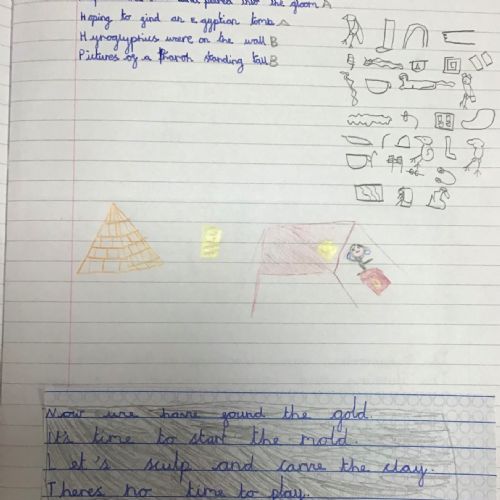 into the gloom A
Hoping to find an Egyption tomb A
Hyroglyphics were on the wall B
Pictures of a Pharoh standing tall B
Now we have found the gold.
It's time to start the mold.
Let's sculp and carve the clay.
Theres no time to play.